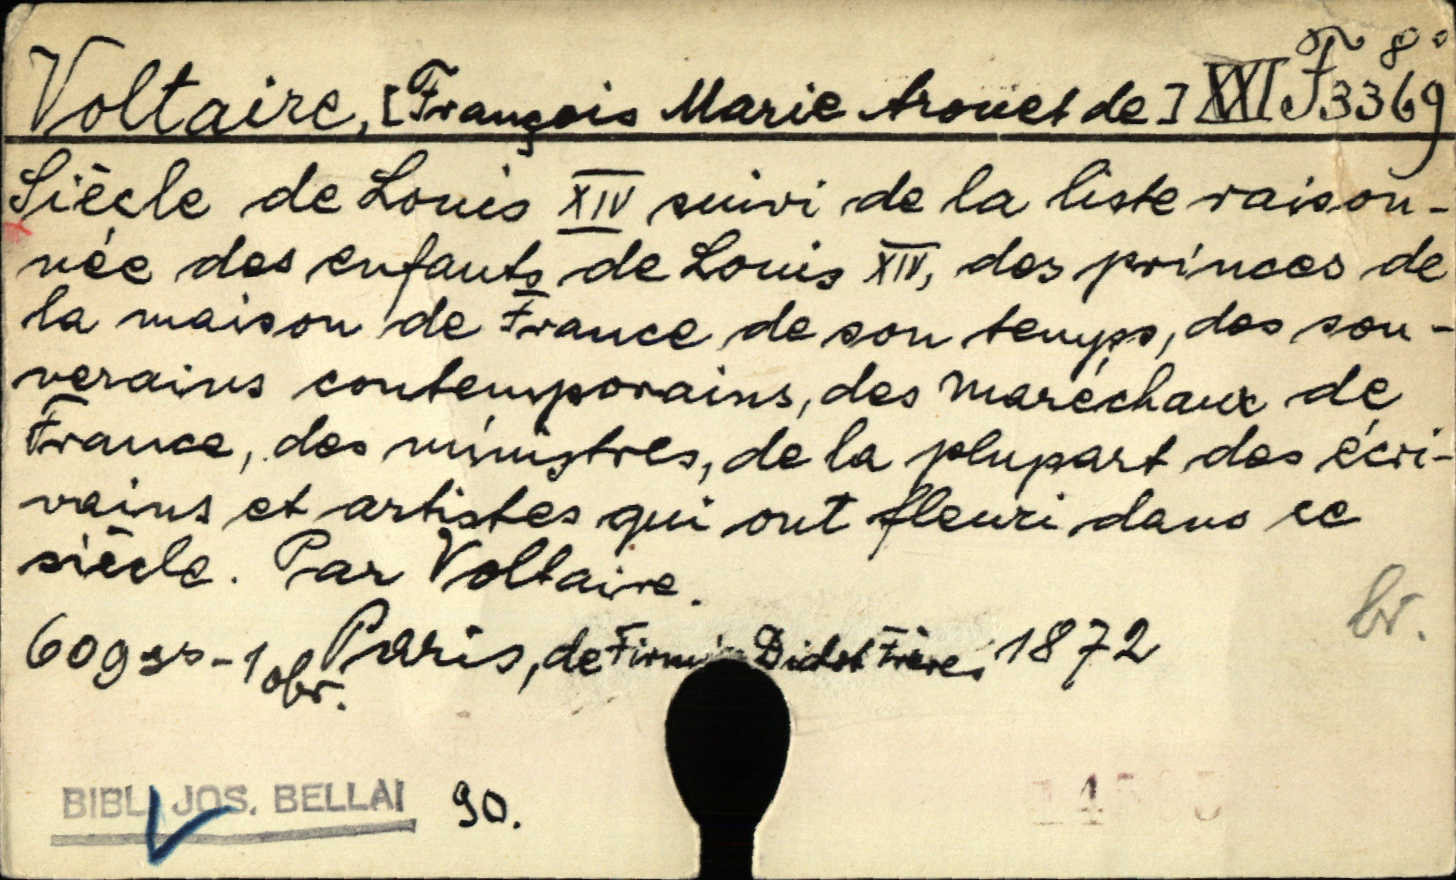 Voltaire, [François Marie Arouet de] XXI F 8° 3369
Siècle de Louis XIV suivi de la liste raison-
née des enfants de Louis XIV, des princes de
la maison de France de son temps, des sou-
verains contemporains, des Maréchaux de
France, des ministres, de la plupart des écri-
vains et artistes qui ont fleuri dans ce
siècle. Par Voltaire.
br.
609 ss - 1 obr. Paris, de Firmin Didot Frères 1872
BIBL. JOS. BELLAI 90.